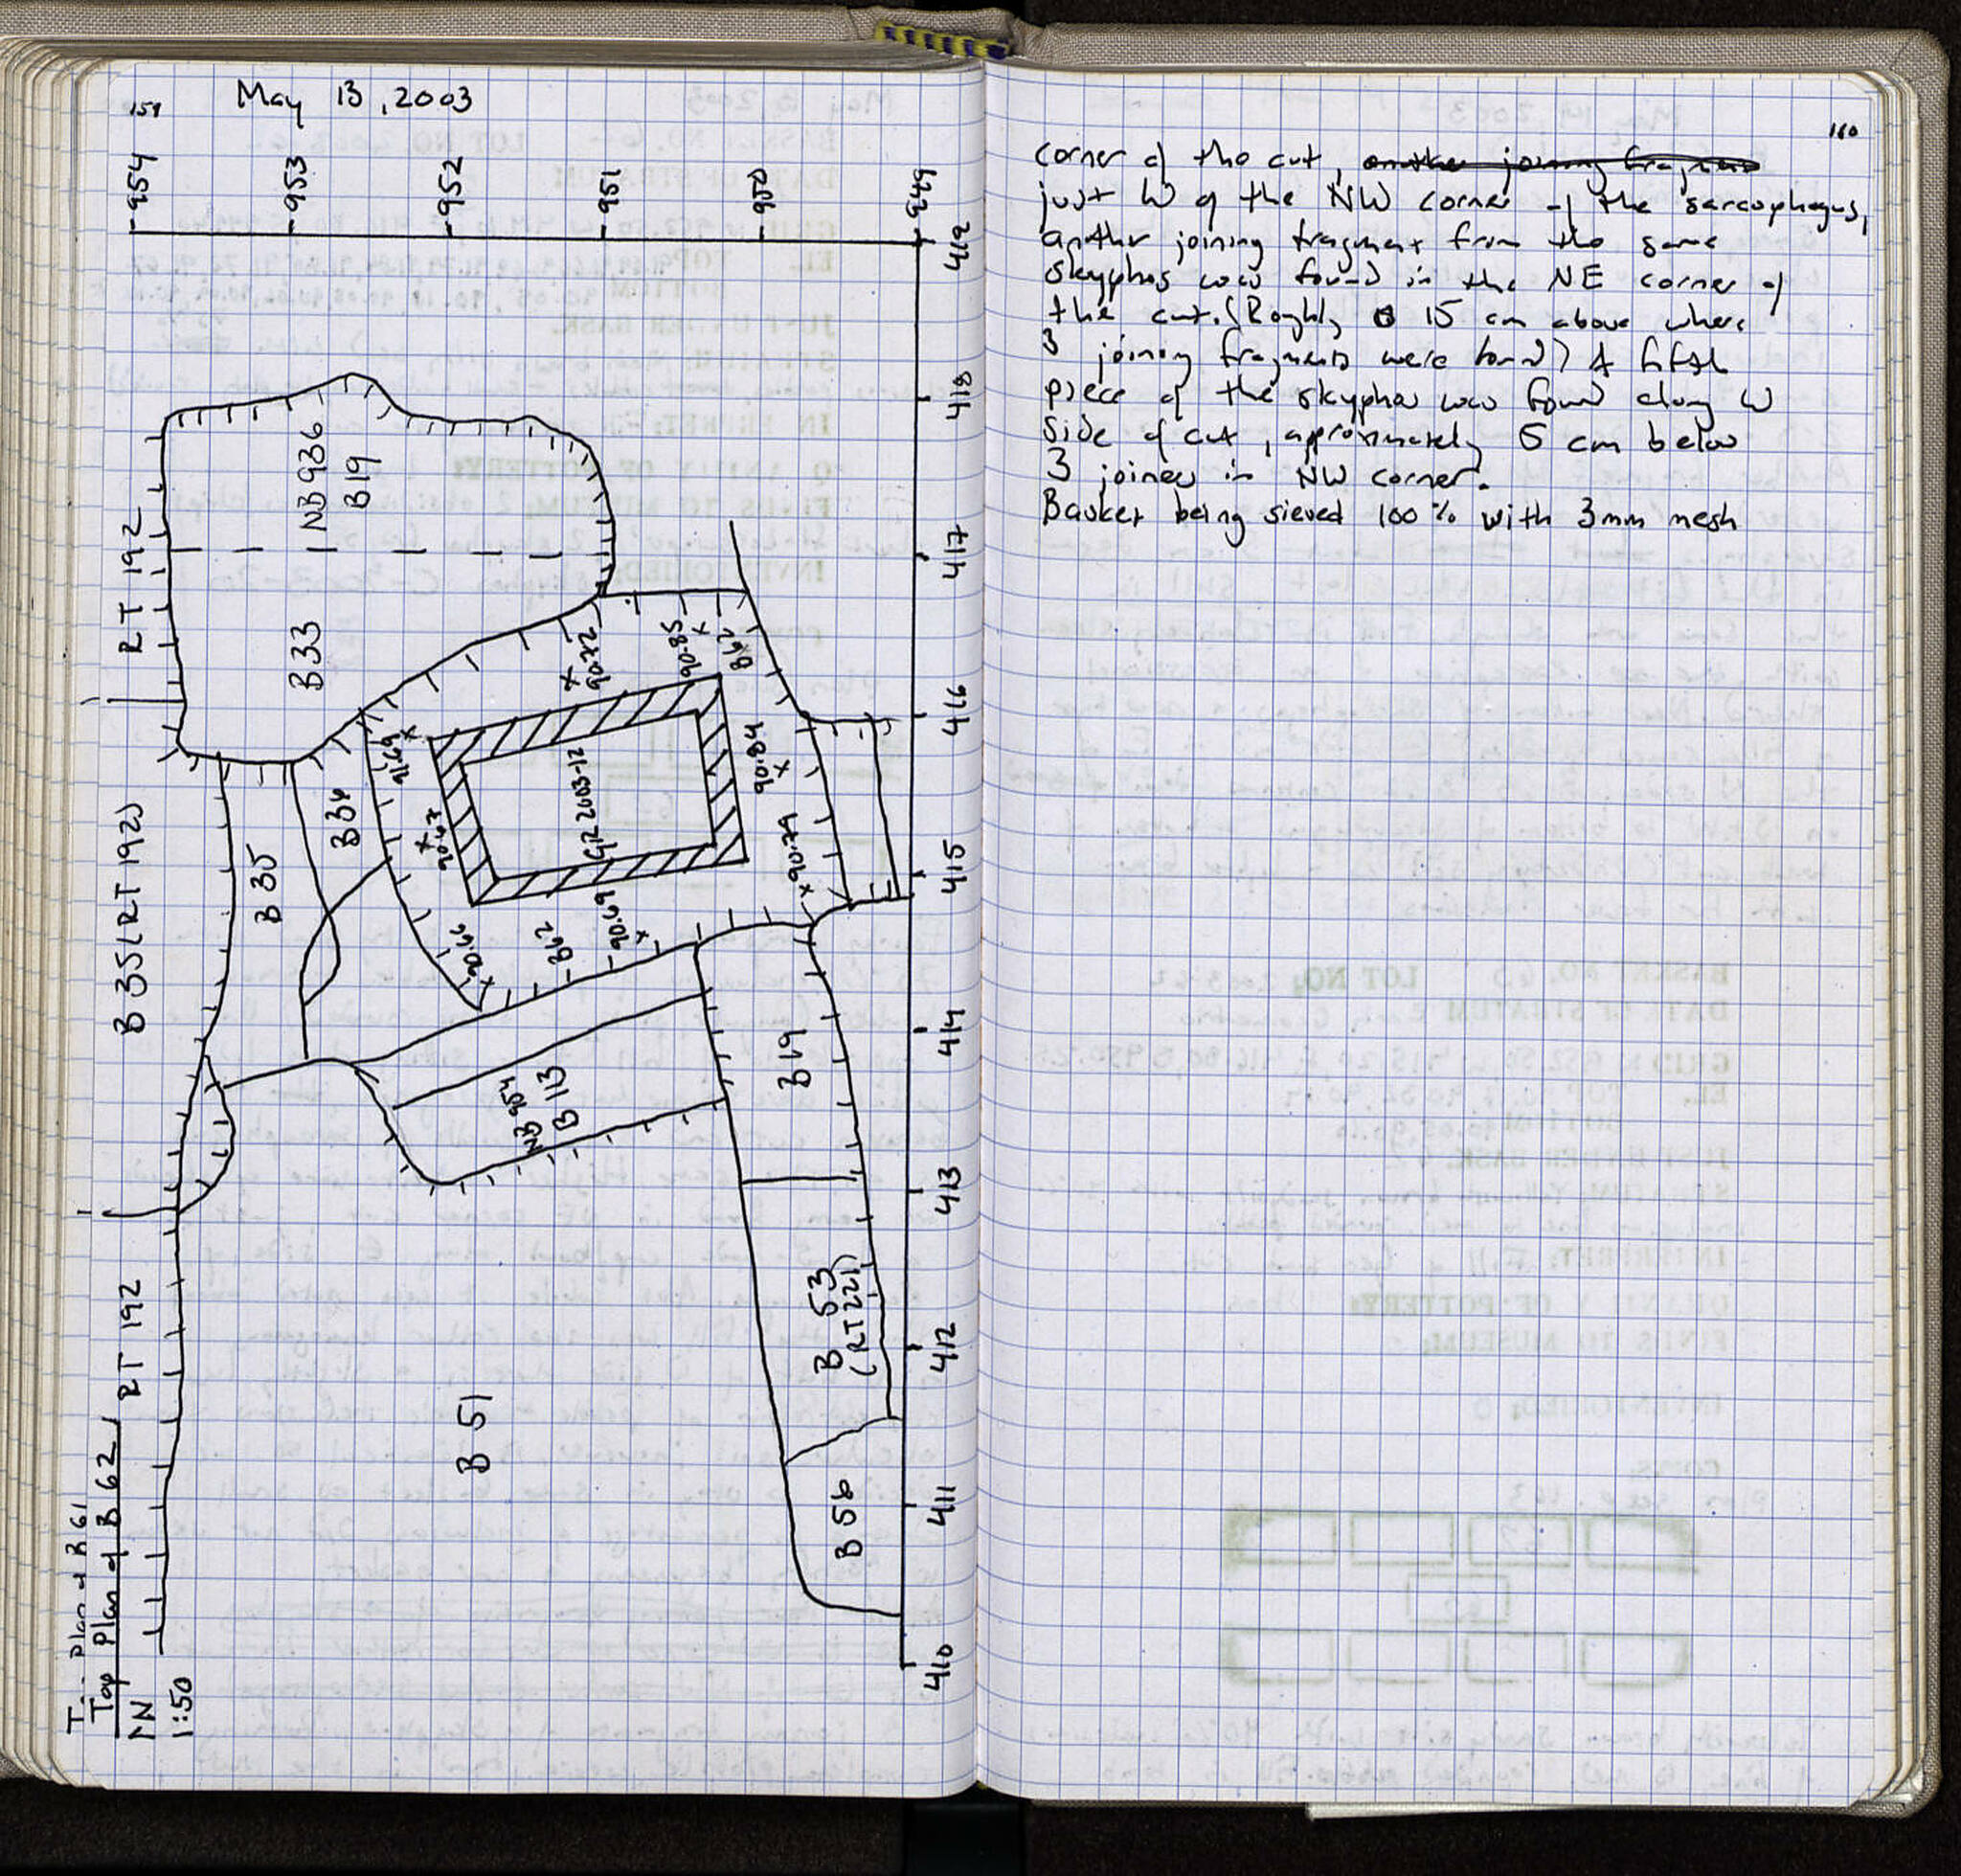 159
May 13, 2003
954
953
952
951
950
949
419
418
417
416
415
414
413
412
411
410
RT 192
NB936
B19
B33
B35(RT192)
B35
B34
91.69
90.67
90.72
90.85
B62
90.84
90.79
G2 2003-12
90.66
B62
90.69
NB 954
B 113
B19
B 53
(RT221)
B 51
B 56
RT 192
Top Plan of B 61
Top Plan of B 62
↑N
1:50
160
corner of the cut, another joining fragment
just W of the NW corner of the sarcophagus,
another joining fragment from the same
skyphos was found in the NE corner of
the cut. (Roughly 15 cm above where
3 joining fragments were found) A fifth
piece of the skyphos was found along W
side of cut, aproximately 5 cm below
3 joiners in NW corner.
Basket being sieved 100% with 3mm mesh